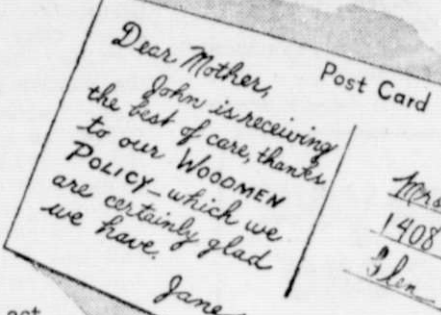 Dear Mother,
John is receiving
the best of care, thanks
to our WOODMEN
POLICY — which we
are certainly glad
we have.
Jane
Post Card
Mrs
1408
Glen